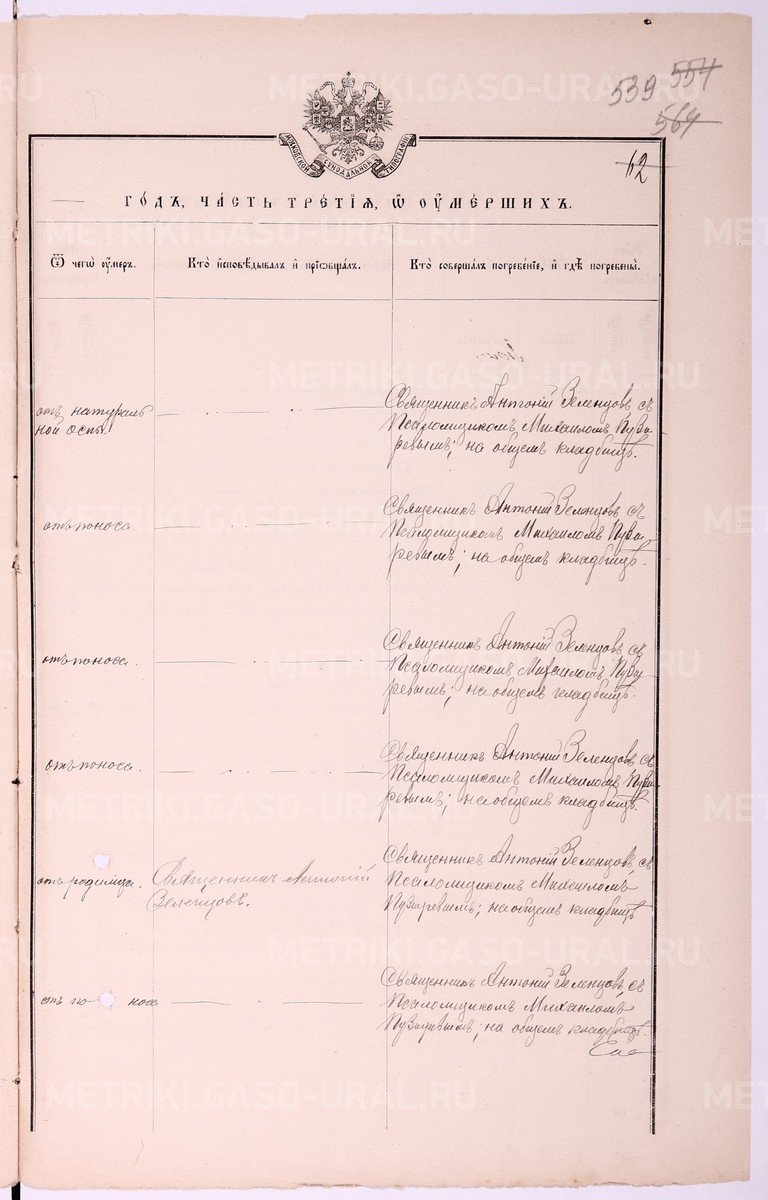 539 554
564
62
МОСКОВСКОЙ СѴНОДАЛЬНОЙ ТИПОГРАФІИ
ГО́ДЪ, ЧА́СТЬ ТРЕ́ТІѦ, Ѽ ОУ҆МЕ́РШИХЪ.
Ѿ чегѡ̀ оу҆́меръ.
Кто̀ и҆сповѣ́дывалъ и҆ прїѡбща́лъ.
Кто̀ соверша́лъ погребе́нїе, и҆ гдѣ̀ погребены̀.
отъ натураль
ной оспы.
Священникъ Антоній Зеленцовъ съ
Псаломщикомъ Михаиломъ Пузы
ревымъ; на общемъ кладбищѣ.
отъ поноса.
Священникъ Антоній Зеленцовъ съ
Псаломщикомъ Михаиломъ Пузы
ревымъ; на общемъ кладбищѣ.
отъ поноса.
Священникъ Антоній Зеленцовъ съ
Псаломщикомъ Михаиломъ Пузы
ревымъ; на общемъ кладбищѣ.
отъ поноса.
Священникъ Антоній Зеленцовъ съ
Псаломщикомъ Михаиломъ Пузы
ревымъ; на общемъ кладбищѣ.
отъ родимца.
Священникъ Антоній
Зеленцовъ.
Священникъ Антоній Зеленцовъ, съ
Псаломщикомъ Михаиломъ
Пузыревымъ; на общемъ кладбищѣ
отъ поноса
Священникъ Антоній Зеленцовъ, съ
Псаломщикомъ Михаиломъ
Пузыревымъ; на общемъ кладбищѣ.
METRIKI.GASO-URAL.RU